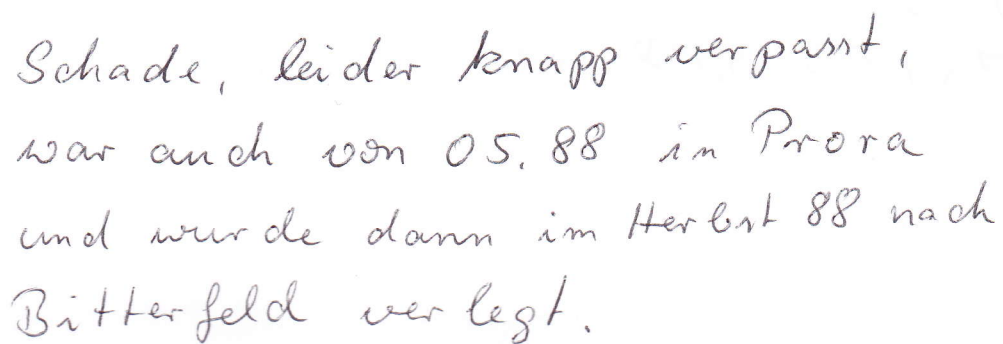 Schade, leider knapp verpasst,
war auch von 05.88 in Prora
und wurde dann im Herbst 88 nach
Bitterfeld verlegt.